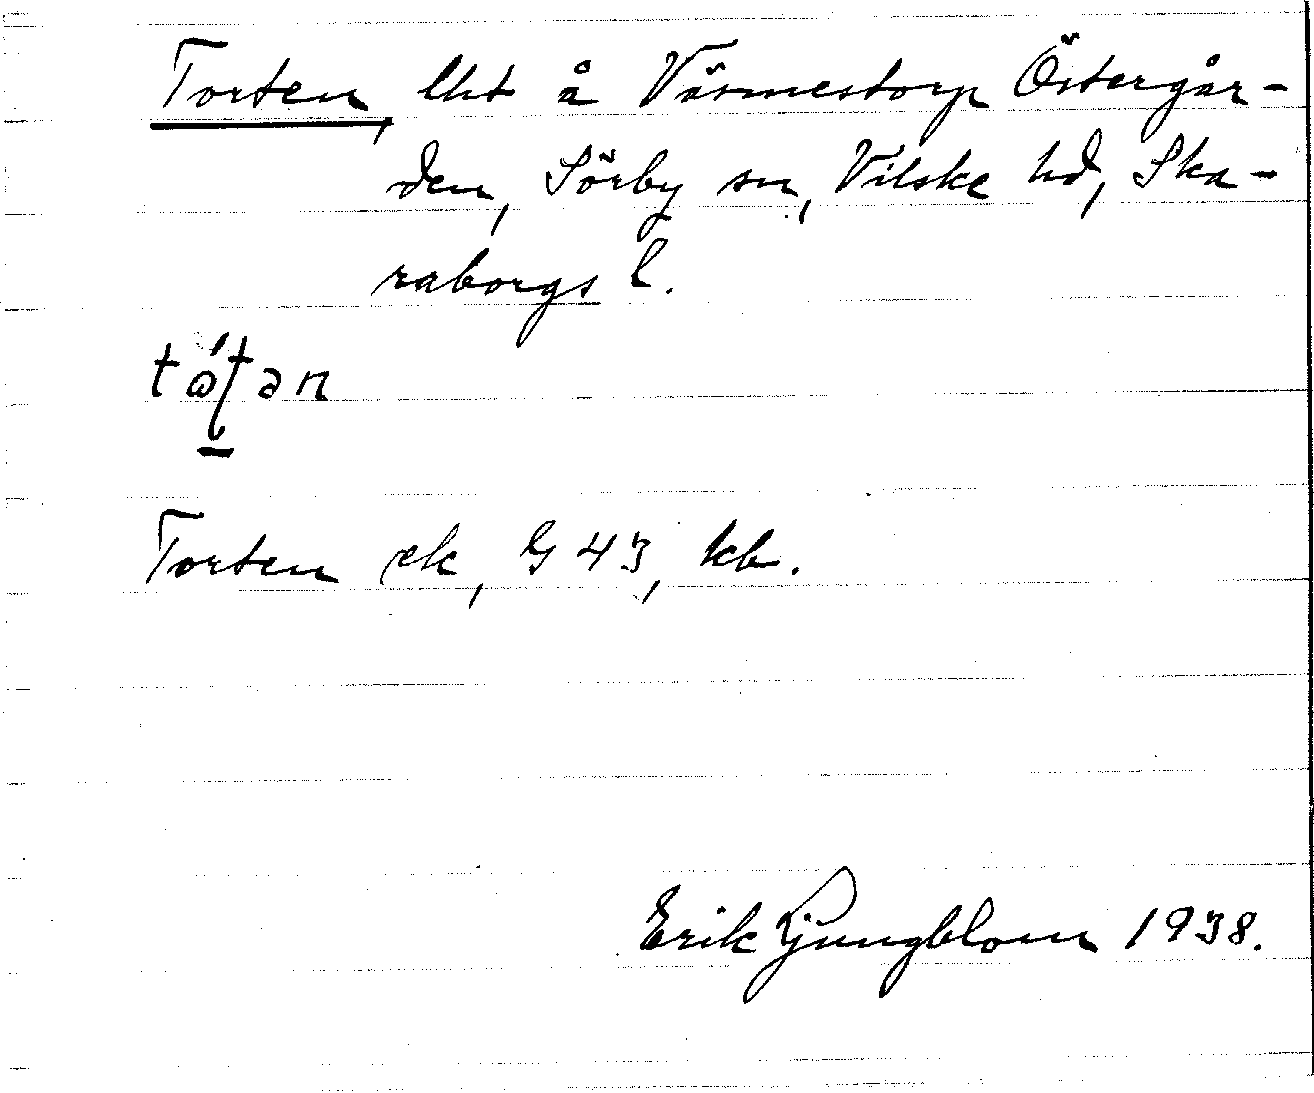 Torten, lht å Värmestorp Östergår-
den, Sörby sn, Vilske hd, Ska-
raborgs l.
Torten ek, G 43, kb.
Erik Ljungblom 1938.